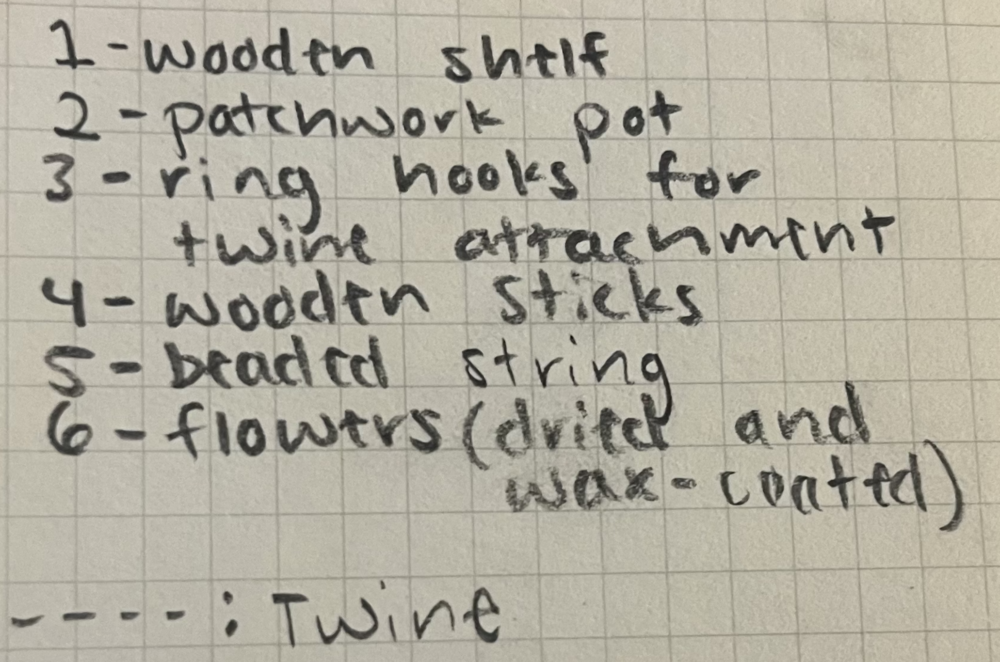 1 - wooden shelf
2 - patchwork pot
3 - ring hooks for
twine attachment
4 - wooden sticks
5 - beaded string
6 - flowers (dried and
wax-coated)
---- : Twine